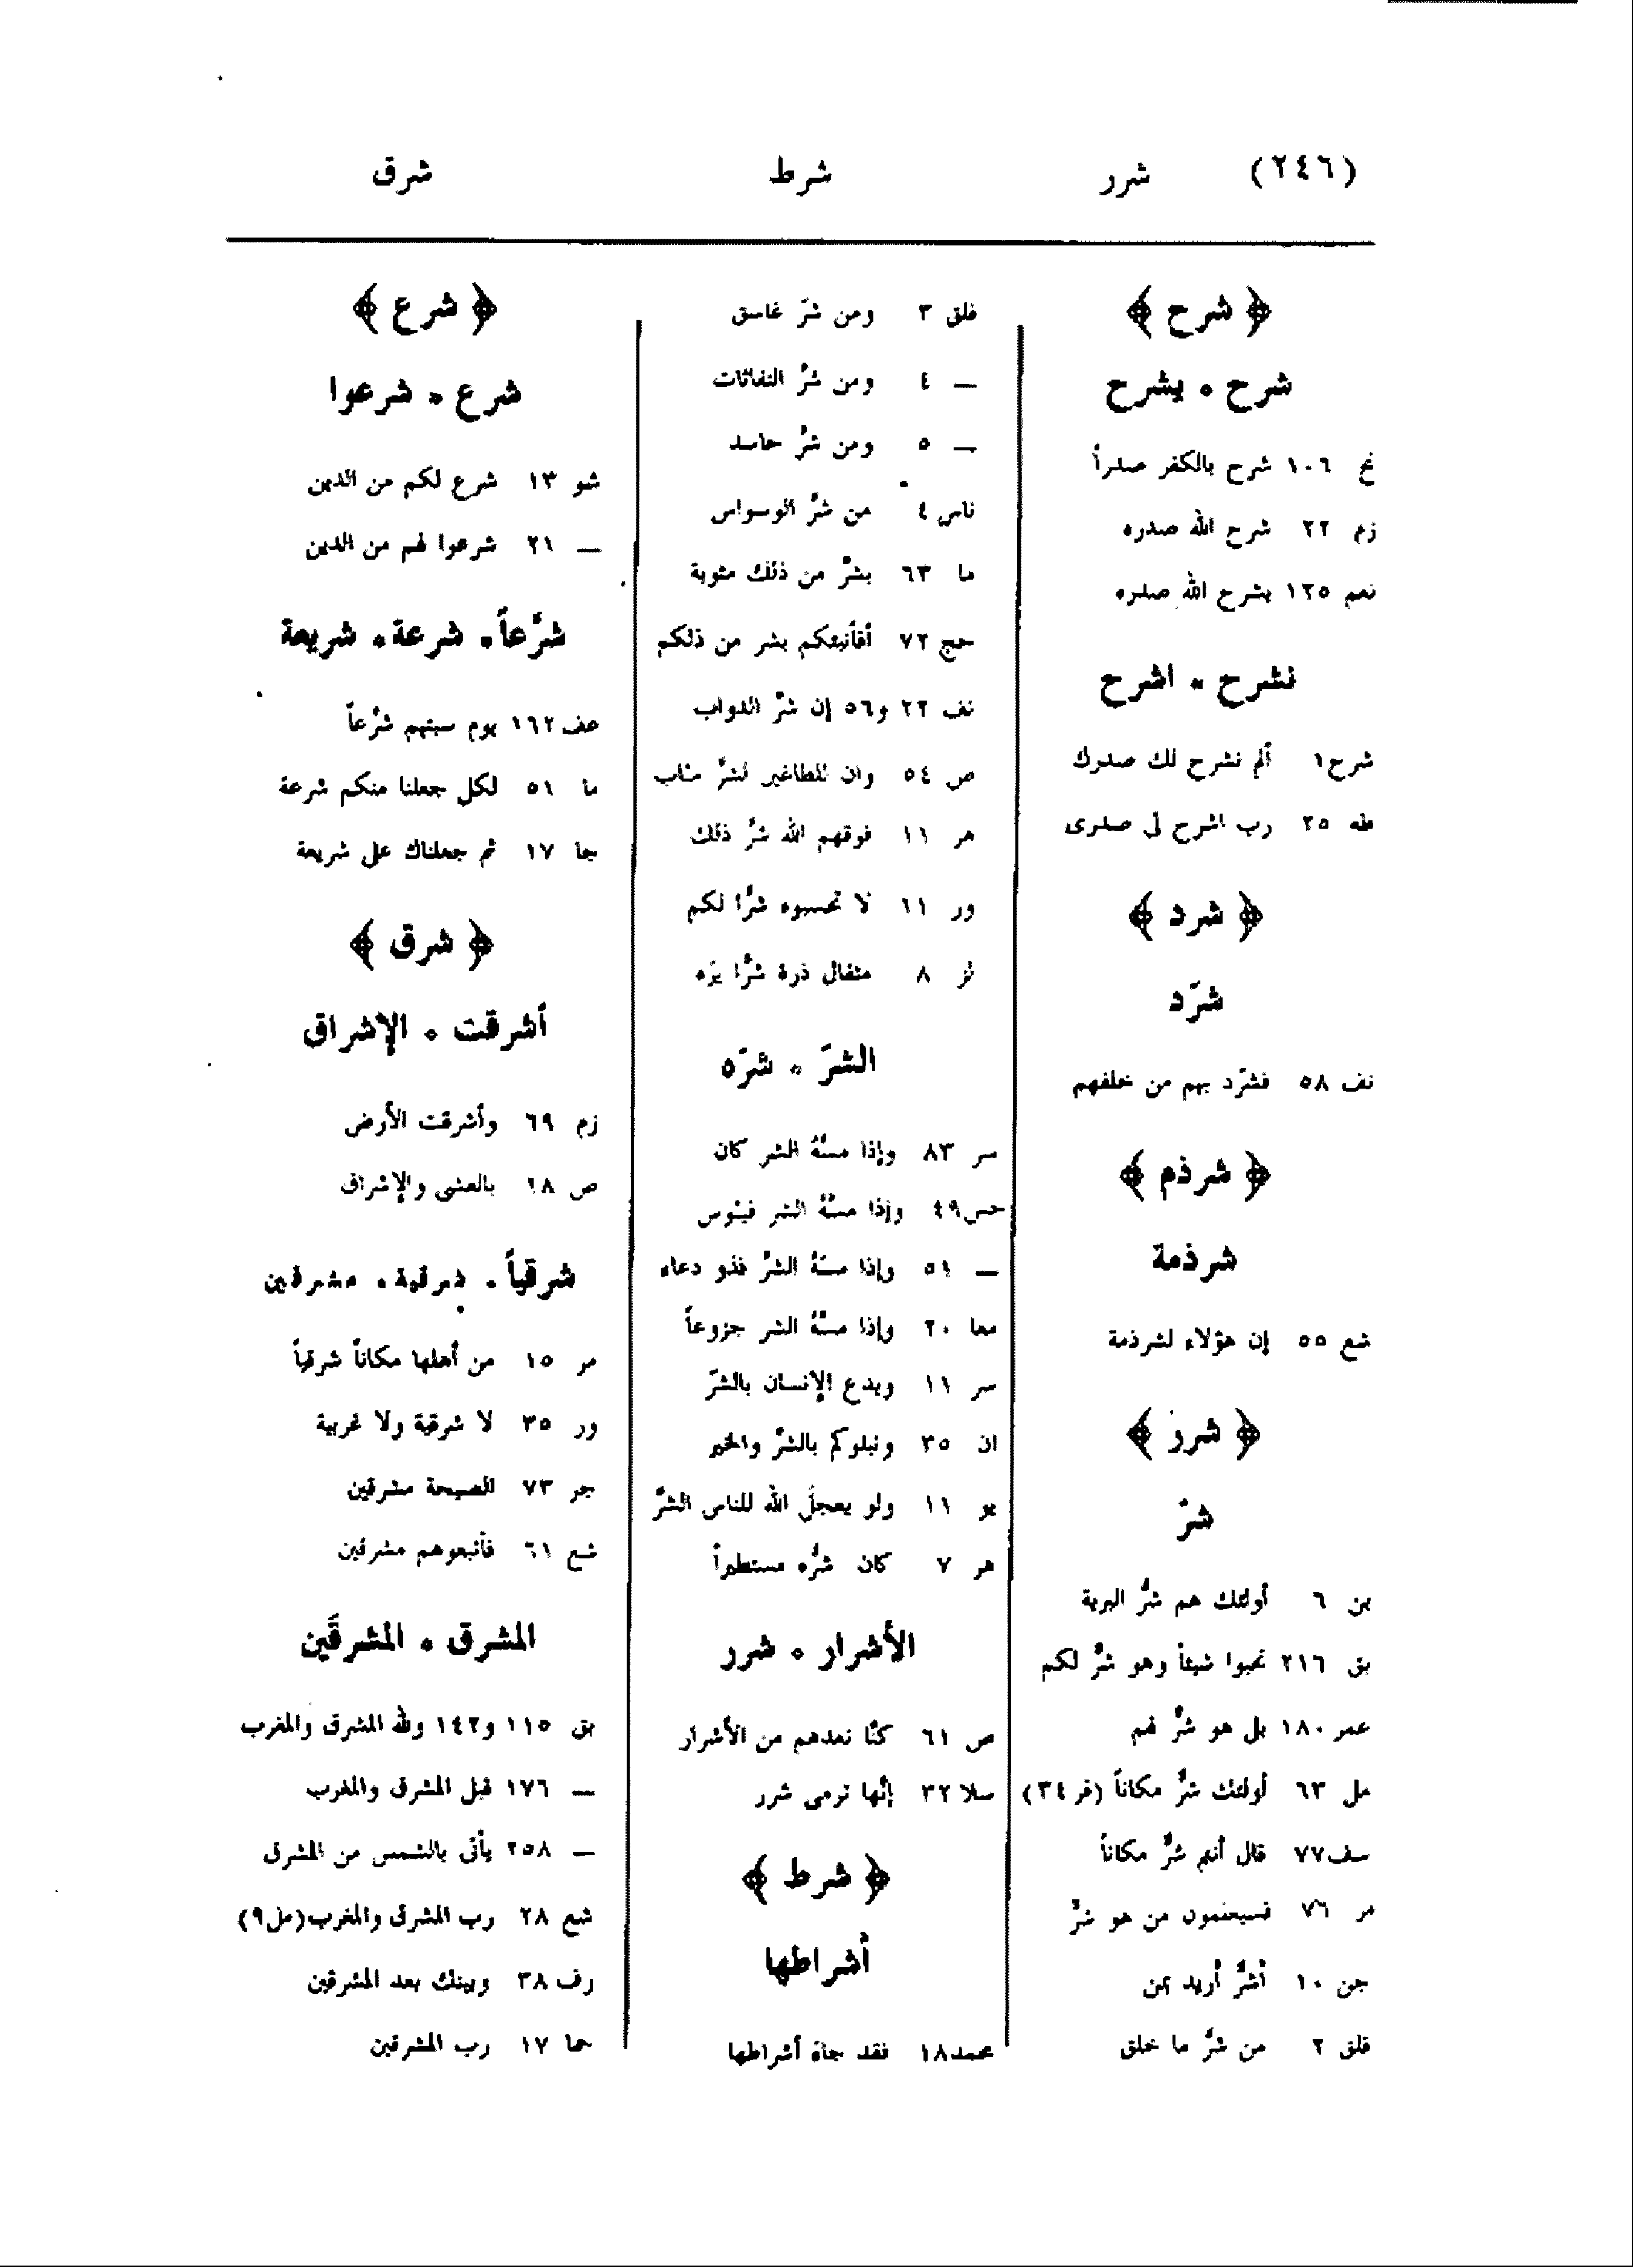 (٢٤٦) شرر شرط شرق
﴿ شرح ﴾
شرح ٠ يشرح
نح ١٠٦ شرح بالكفر صدراً
زم ٢٢ شرح الله صدره
نعم ١٢٥ يشرح الله صدره
نشرح ٠ اشرح
شرح ١ ألم نشرح لك صدرك
طه ٢٥ رب اشرح لى صدرى
﴿ شرد ﴾
شرّد
نف ٥٨ فشرّد بهم من خلفهم
﴿ شرذم ﴾
شرذمة
شع ٥٥ إن هؤلاء لشرذمة
﴿ شرر ﴾
شرّ
بن ٦ أولئك هم شرُّ البرية
بق ٢١٦ تحبوا شيئاً وهو شرٌّ لكم
عمر ١٨٠ بل هو شرٌّ لهم
مل ٦٣ أولئك شرٌّ مكاناً (فر ٣٤)
سف ٧٧ قال أنتم شرٌّ مكاناً
مر ٧٦ فسيعلمون من هو شرٌّ
جن ١٠ أشرٌّ أريد بمن
فلق ٢ من شرِّ ما خلق
فلق ٣ ومن شرّ غاسق
— ٤ ومن شرِّ النفاثات
— ٥ ومن شرِّ حاسد
ناس ٤ من شرِّ الوسواس
ما ٦٣ بشرٍّ من ذلك مثوبة
حج ٧٢ أفأنبئكم بشر من ذلكم
نف ٢٢ و٥٦ إن شرَّ الدواب
ص ٥٤ وان للطاغين لشرَّ مئاب
هر ١١ فوقهم الله شرَّ ذلك
ور ١١ لا تحسبوه شرًّا لكم
لز ٨ مثقال ذرة شرًّا يرَه
الشرّ ٠ شرّه
سر ٨٣ وإذا مسَّهُ الشر كان
حس ٤٩ وإذا مسَّهُ الشر فيئوس
— ٥١ وإذا مسَّهُ الشرُّ فذو دعاء
معا ٢٠ وإذا مسَّهُ الشر جزوعاً
سر ١١ ويدع الإنسان بالشرّ
ان ٣٥ ونبلوكم بالشرِّ والخير
يو ١١ ولو يعجلُ الله للناس الشرَّ
هر ٧ كان شرُّه مستطيراً
الأشرار ٠ شرر
ص ٦١ كنَّا نعدهم من الأشرار
سلا ٣٢ إنَّها ترمى شرر
﴿ شرط ﴾
أشراطها
محمد ١٨ فقد جاءَ أشراطها
﴿ شرع ﴾
شرع ٠ شرعوا
شو ١٣ شرع لكم من الدين
— ٢١ شرعوا لهم من الدين
شرَّعاً ٠ شرعة ٠ شريعة
عف ١٦٢ يوم سبتهم شرَّعاً
ما ٥١ لكل جعلنا منكم شرعة
جا ١٧ ثم جعلناك على شريعة
﴿ شرق ﴾
أشرقت ٠ الإشراق
زم ٦٩ وأشرقت الأرض
ص ١٨ بالعشى والإشراق
شرقياً ٠ شرقية ٠ مشرقين
مر ١٥ من أهلها مكاناً شرقياً
ور ٣٥ لا شرقية ولا غربية
جر ٧٣ الصيحة مشرقين
شع ٦١ فأتبعوهم مشرقين
المشرق ٠ المشرقَين
بق ١١٥ و١٤٢ ولله المشرق والمغرب
— ١٧٦ قبل المشرق والمغرب
— ٢٥٨ يأتى بالشمس من المشرق
شع ٢٨ رب المشرق والمغرب (مل ٩)
رف ٣٨ وبينك بعد المشرقين
حما ١٧ رب المشرقين